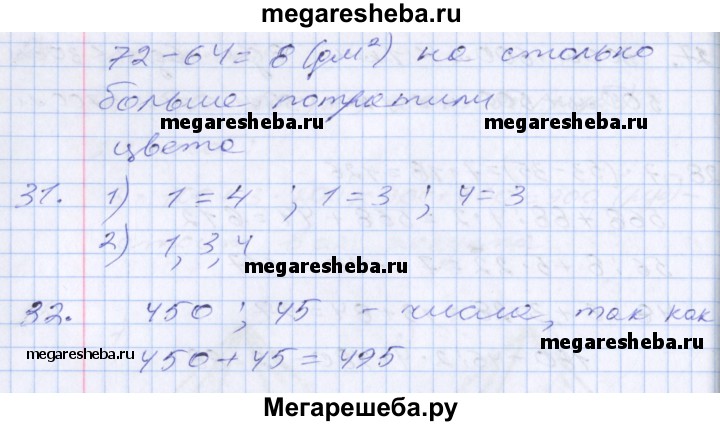 megaresheba.ru
72-64= 8 (дм²) на столько
больше потратили
megaresheba.ru megaresheba.ru
цвета
31. 1) 1=4 ; 1=3 ; 4=3
2) 1, 3, 4
megaresheba.ru
32. 450 ; 45 - числа, так как
megaresheba.ru 450+45=495 megaresheba.ru
Мегарешеба.ру